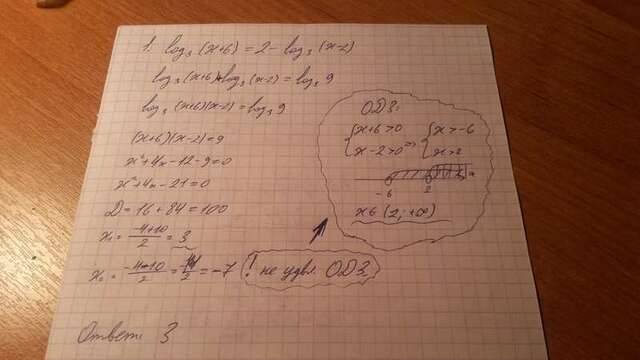 1. log₃(x+6) = 2 - log₃(x-2)
log₃(x+6)+log₃(x-2) = log₃ 9
log₃ (x+6)(x-2) = log₃ 9
(x+6)(x-2) = 9
x²+4x-12-9=0
x²+4x-21=0
D = 16+84 = 100
x₁ = (-4+10)/2 = 3
x₂ = (-4-10)/2 = 14/2 = -7 (! не удвл. ОДЗ)
Ответ: 3
ОДЗ:
{x+6>0 => {x>-6
{x-2>0 {x>2
-6 2 x
x∈(2; +∞)